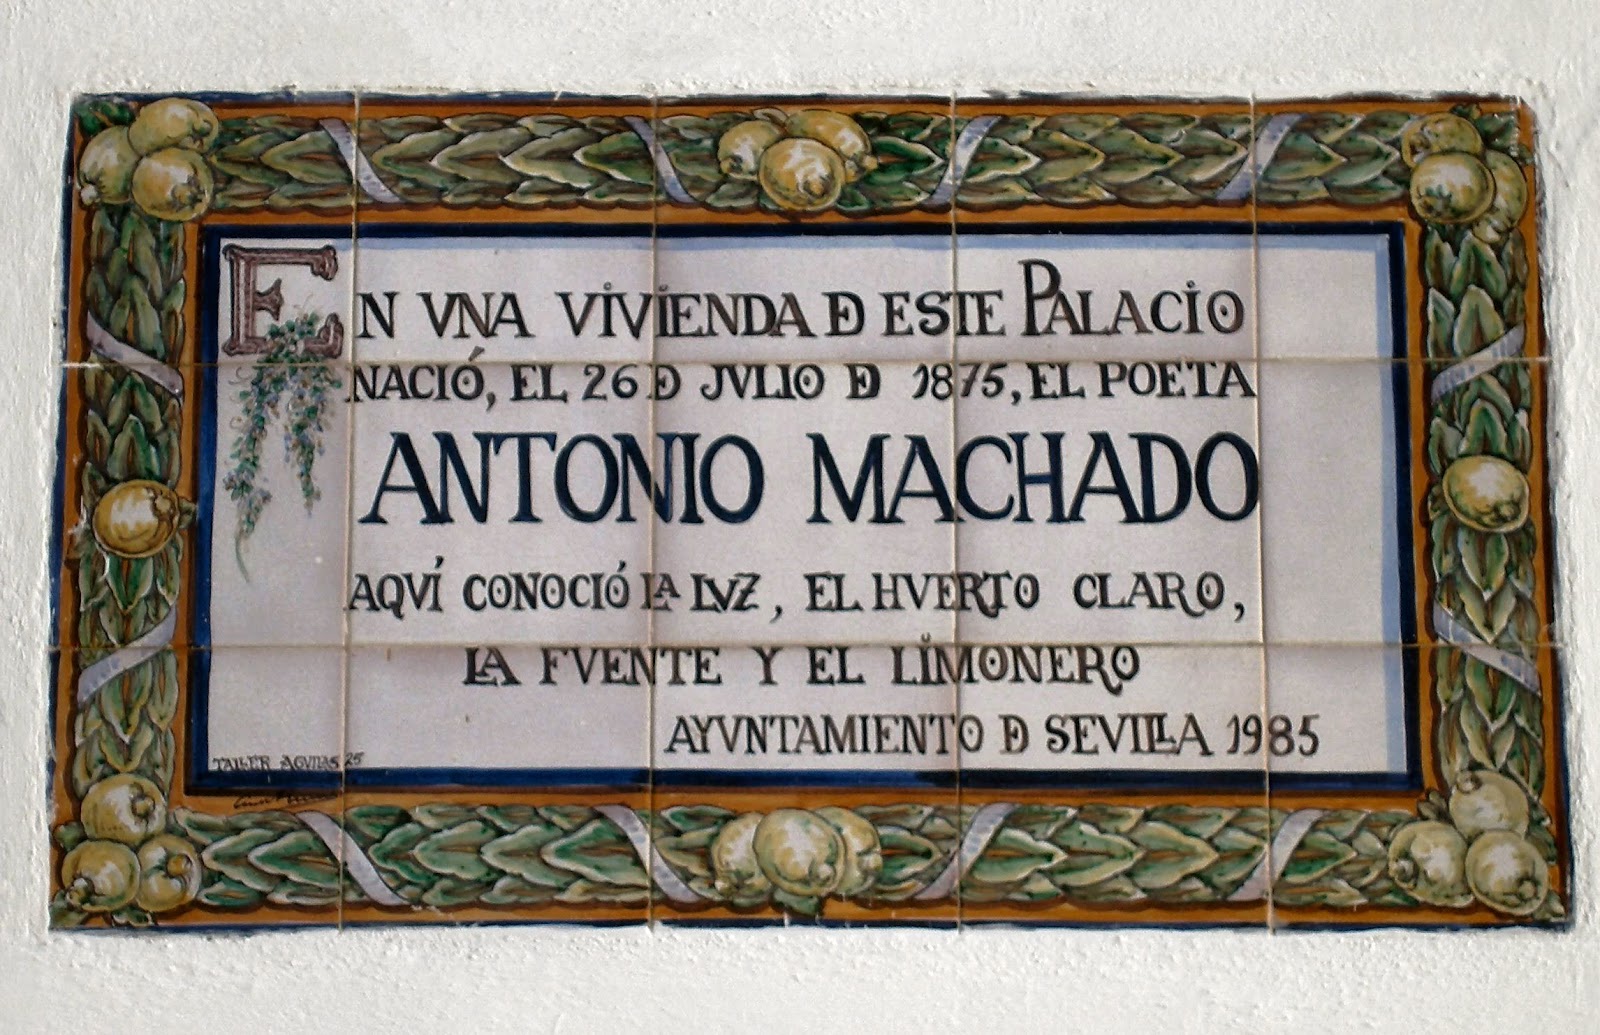 EN VNA VIVIENDA DE ESTE PALACIO
NACIÓ, EL 26 DE JVLIO DE 1875, EL POETA
ANTONIO MACHADO
AQVÍ CONOCIÓ LA LVZ, EL HVERTO CLARO,
LA FVENTE Y EL LIMONERO
AYVNTAMIENTO DE SEVILLA 1985
TALLER AGVILAS 25